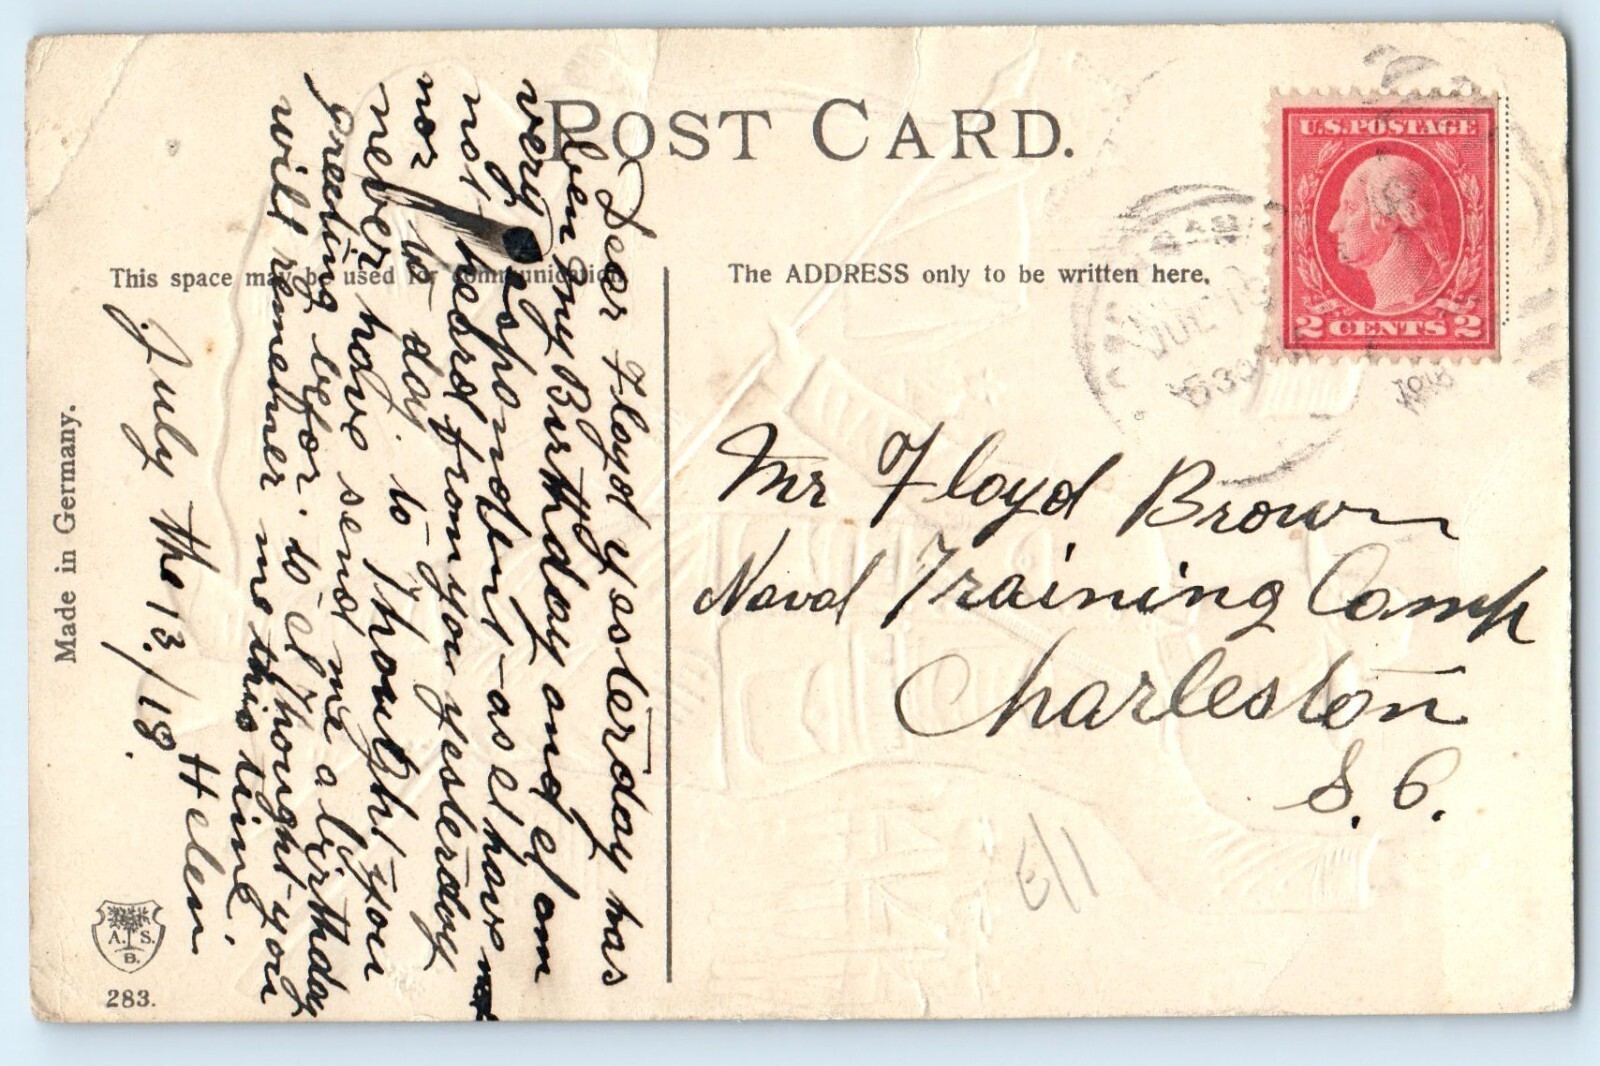 POST CARD.
This space may be used for communication.
The ADDRESS only to be written here.
Made in Germany.
A. S.
B.
283.
U.S. POSTAGE
2 CENTS 2
JUL 13
530
1918
Mr Floyd Brown
Naval Training Camp
Charleston
S. C.
11/3
Dear Floyd yesterday has
ben my Birthday and I am
very Dispondent - as I have not
not heard from you yesterday
nor to day. to Thought you
never have send me a birthday
greeting befor. to I Thought you
will remember me this time.
Helen
July the 13./18.